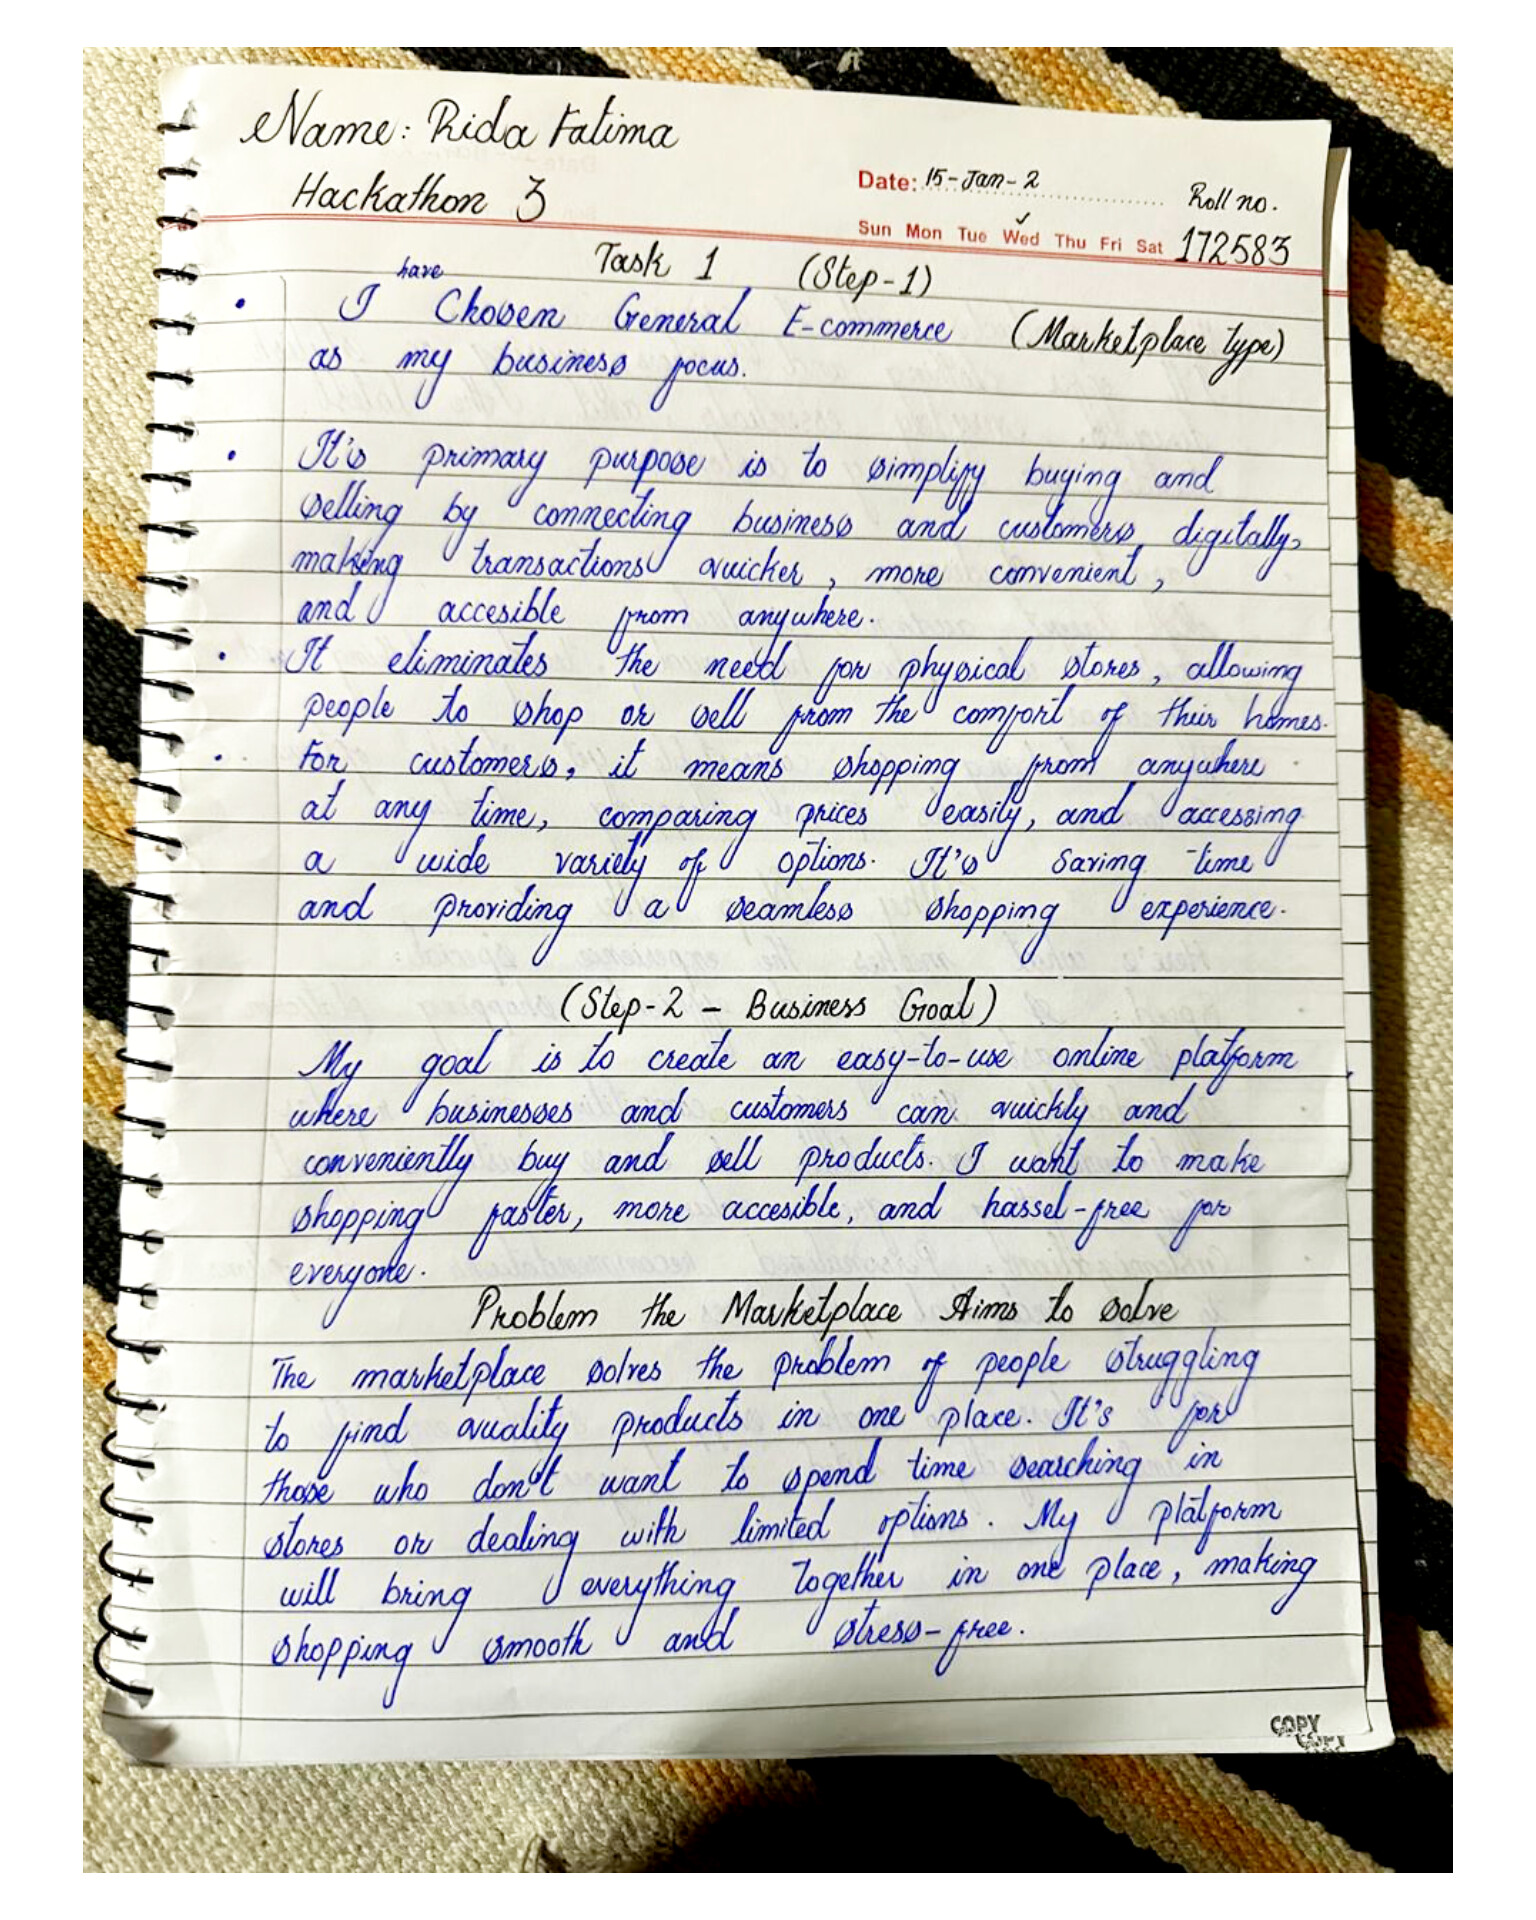 Name: Rida Fatima
Hackathon 3
Date: 15-Jan-2
Roll no.
Sun Mon Tue Wed Thu Fri Sat 172583
Task 1 (Step-1)
have
• I Chosen General E-commerce (Marketplace type)
as my business focus.
• It's primary purpose is to simplify buying and
selling by connecting business and customers digitally,
making transactions quicker, more convenient,
and accesible from anywhere.
• It eliminates the need for physical stores, allowing
people to shop or sell from the comfort of their homes.
• For customers, it means shopping from anywhere
at any time, comparing prices easily, and accessing
a wide variety of options. It's saving time
and providing a seamless shopping experience.
(Step-2 - Business Goal)
My goal is to create an easy-to-use online platform
where businesses and customers can quickly and
conveniently buy and sell products. I want to make
shopping faster, more accesible, and hassel-free for
everyone.
Problem the Marketplace Aims to solve
The marketplace solves the problem of people struggling
to find quality products in one place. It's for
those who don't want to spend time searching in
stores or dealing with limited options. My platform
will bring everything together in one place, making
shopping smooth and stress-free.
COPY
COPY